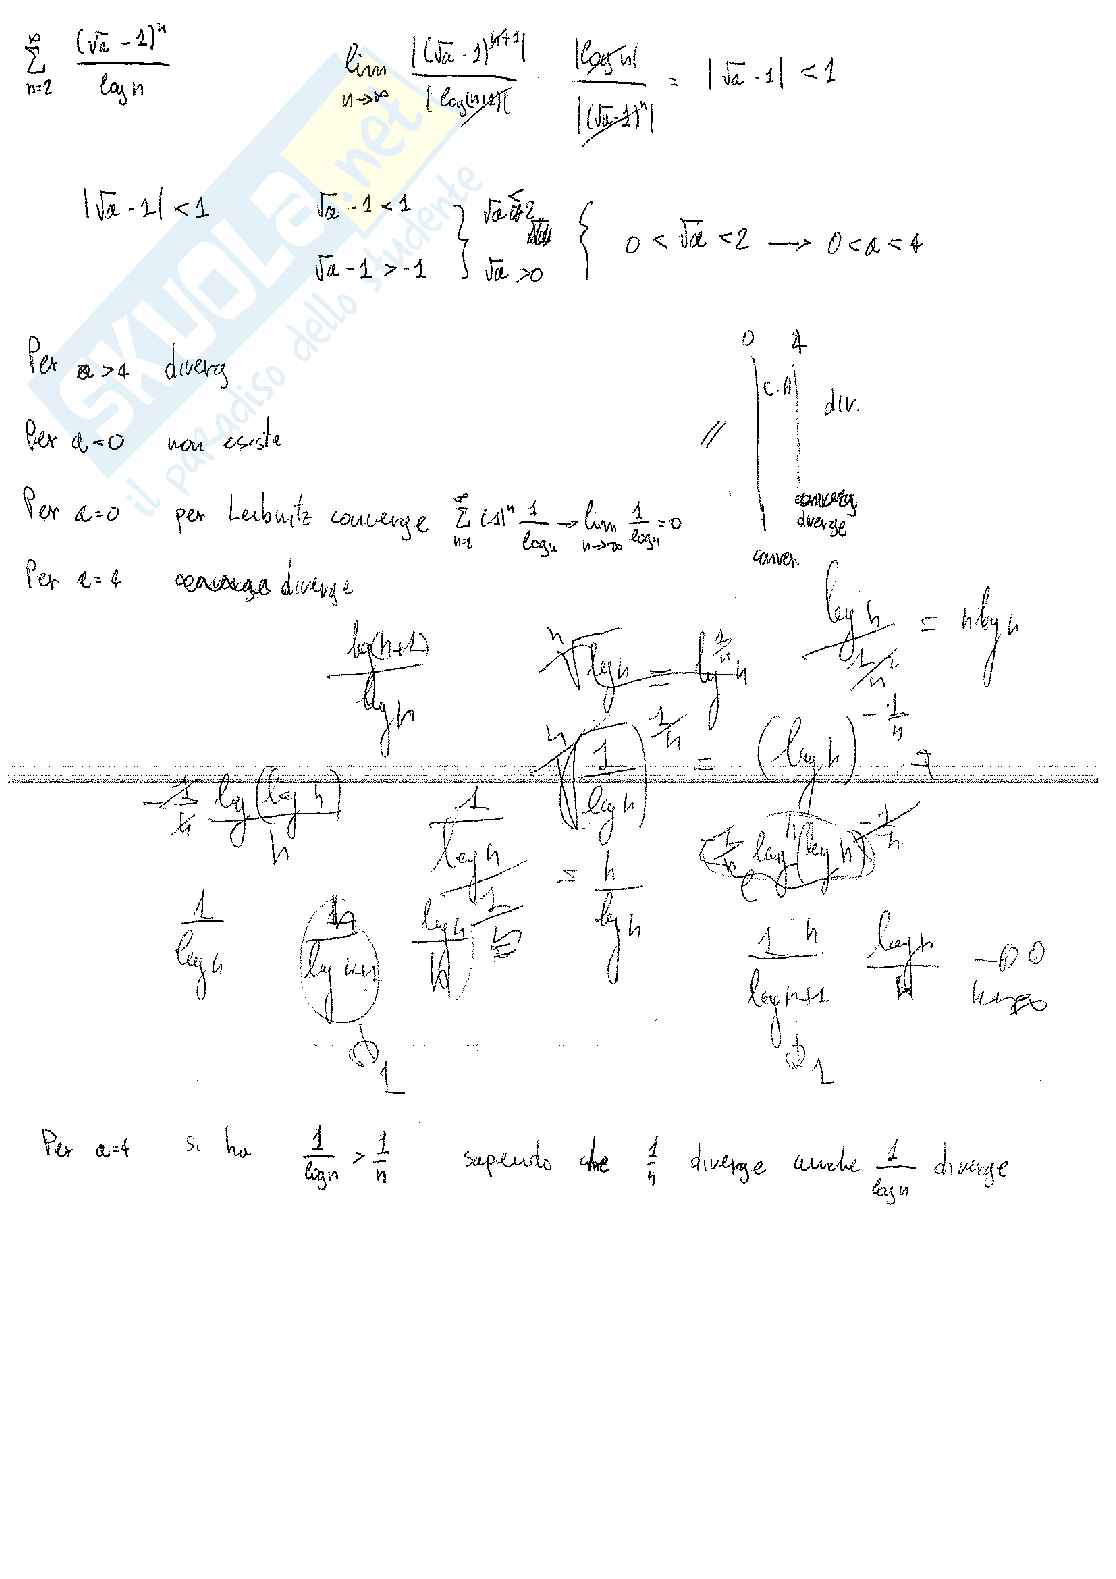 ∞∑n=2 (√a - 1)^n / log n    lim n→∞ |(√a - 1)^(n+1)| / |log(n+1)| · |log n| / |(√a - 1)^n| = |√a - 1| < 1
|√a - 1| < 1    √a - 1 < 1    √a < 2    0 < √a < 2 → 0 < a < 4
√a - 1 > -1    √a > 0
SKUOLA.net
il paradiso dello studente
0    4
Per a > 4 diverg    C.A    div.
Per a < 0 non esiste    //
Per a = 0 per Leibnitz converge ∞∑n=2 (-1)^n 1/log n → lim n→∞ 1/log n = 0    diverge
conver.
Per a = 4 diverge
log(n+1) / log n    n√log n = log^(1/n) n    log n / (1/n) = n log n
n√(1 / log n)^(1/n) = (log n)^(-1/n)
-1/n log(log n) / n    1 / log n = n / log n
1 / log n    log n / n    1 n / log n+1    log n / n → 0
n→∞
1    1
Per a=4 si ha 1/log n > 1/n sapendo che 1/n diverge anche 1/log n diverge